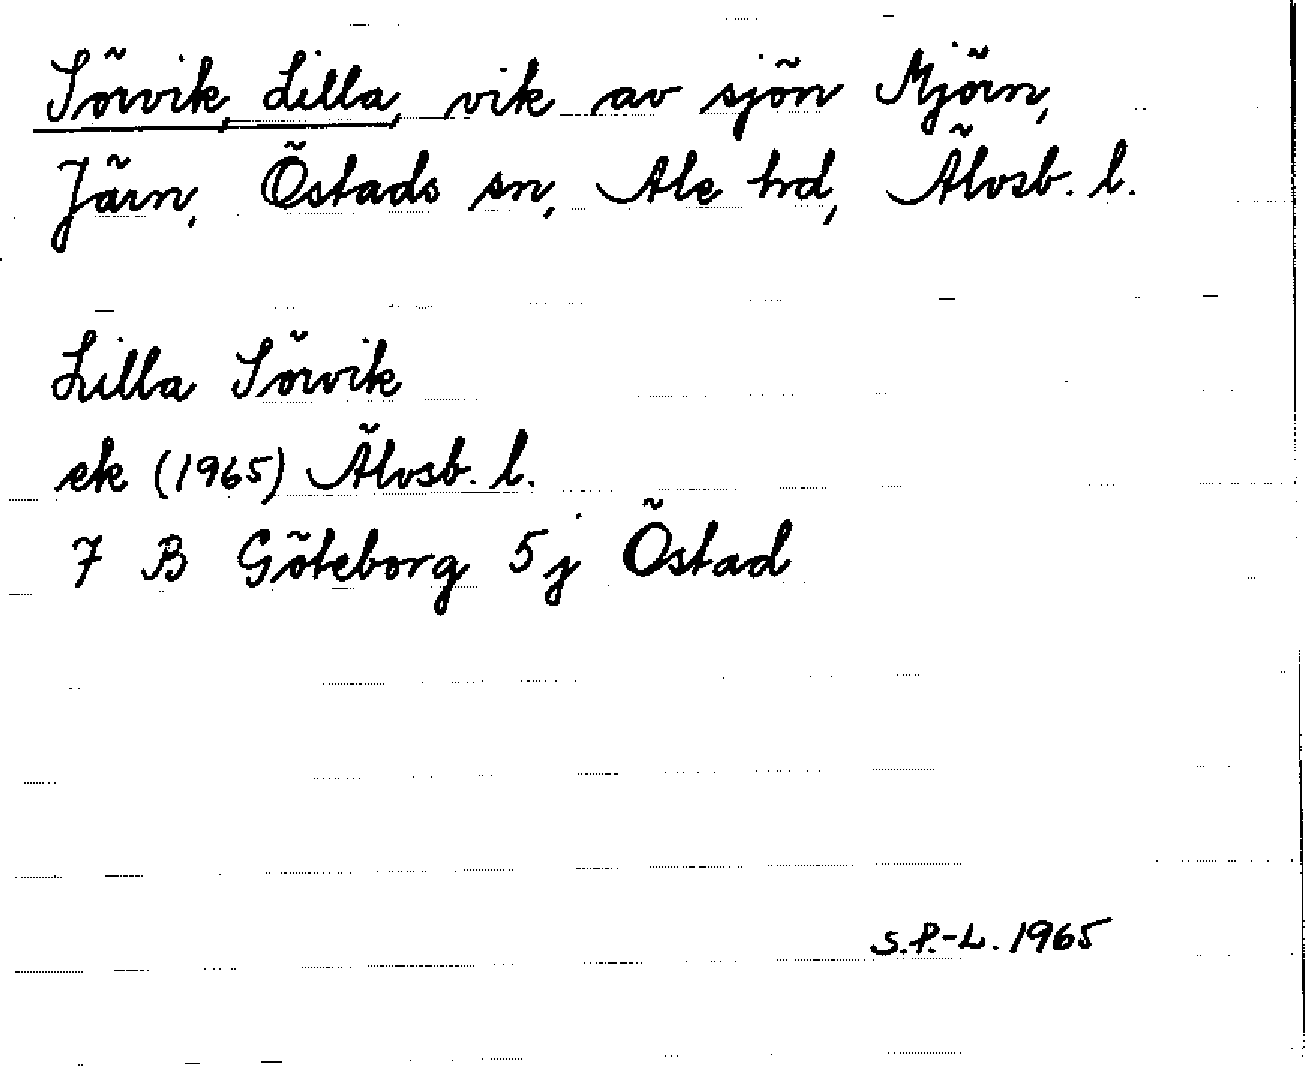 Sörvik, Lilla, vik av sjön Mjörn,
Järn, Östads sn, Ale hrd, Älvsb. l.
Lilla Sörvik
ek (1965) Älvsb. l.
7 B Göteborg 5 j Östad
S.P.-L. 1965